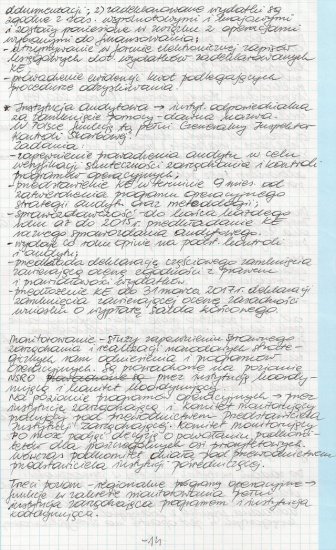 dokumentacji; 2) zadeklarowane wydatki są
zgodne z zas. wspólnotowymi i krajowymi
i zostały poniesione w związku z operacjami
wybranymi do finansowania;
- utrzymywanie w formie elektronicznej zapisów
księgowych dot. wydatków zadeklarowanych
KE;
- prowadzenie ewidencji kwot podlegających
procedurze odzyskiwania.
* Instytucja audytowa → instyt. odpowiedzialna
za zamknięcie pomocy - dawna nazwa.
W Polsce funkcję tą pełni Generalny Inspektor
Kontroli Skarbowej.
Zadania:
- zapewnienie prowadzenia audytu w celu
weryfikacji skuteczności zarządzania i kontroli
programów operacyjnych;
- przedstawienie KE w terminie 9 mies. od
zatwierdzenia programu operacyjnego
strategii audytu oraz metodologii;
- sprawozdawczość do końca każdego
roku aż do 2015r. przedkładanie KE
rocznego sprawozdania audytowego.
- wydaje co roku opinię na podst. kontroli
i audytu;
- przedkłada deklarację częściowego zamknięcia
zawierającą ocenę zgodności z prawem
i prawidłowości wydatków.
- przedłożenie KE do 31 marca 2017r. deklaracji
zamknięcia zawierającej ocenę zasadności
wniosku o wypłatę salda końcowego.
Monitorowanie - służy zapewnieniu sprawnego
zarządzania i realizacji narodowych strate-
gicznych ram odniesienia i programów
operacyjnych. Są prowadzone na poziomie
NSRO przez instytucję koordy-
nującą i komitet koordynacyjny.
Na poziomie programów operacyjnych → przez
instytucję zarządzającą i komitet monitorujący
powołany pod przewodnictwem przedstawiciela
instytucji zarządzającej. Komitet monitorujący
PO może podjąć decyzję o powołaniu podkomi-
tetów dla poszczególnych osi priorytetowych.
Wówczas podkomitet działa pod przewodnictwem
przedstawiciela instytucji pośredniczącej.
Trzeci poziom - regionalne programy operacyjne →
funkcję w zakresie monitorowania pełni
instytucja zarządzająca programem i instytucja
koordynująca.
-14